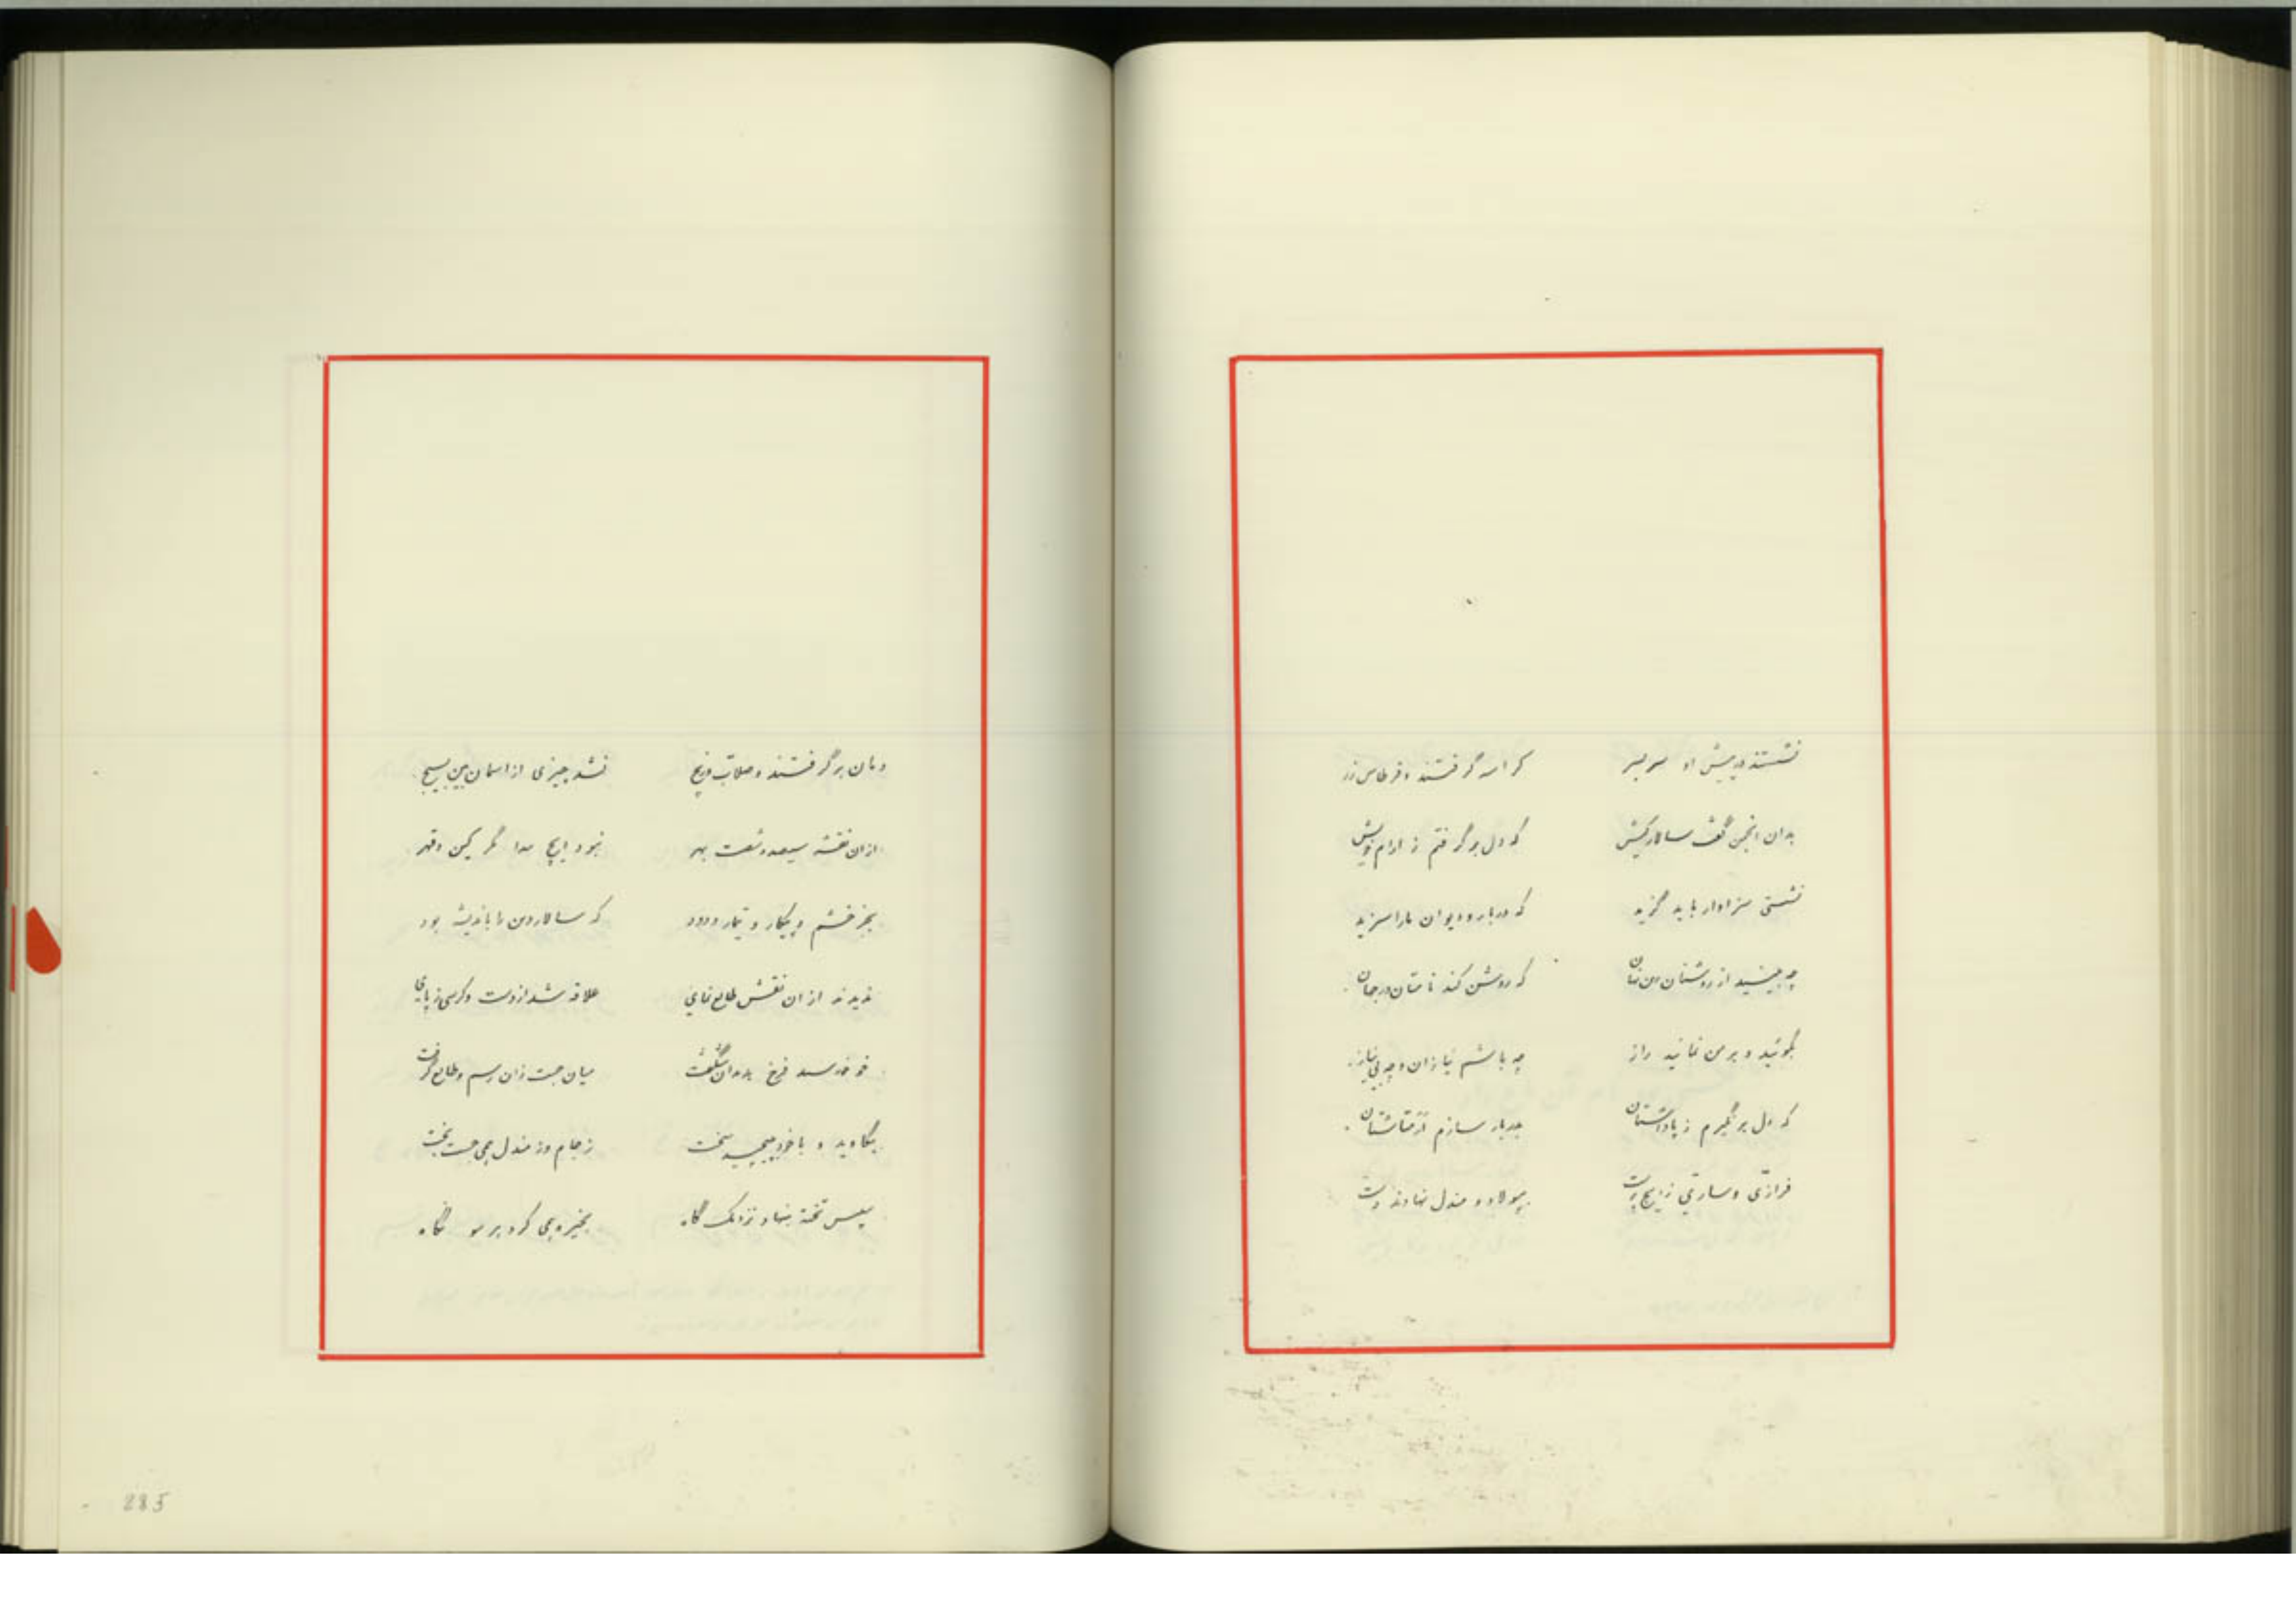 نشستند در پیش او سربسر کراسه گرفتند و قرطاس زر
بدان انجمن گفت سالار کیش که دل بر گرفتم ز آرام خویش
نشستی سزاوار باید گزید که دربار و دیوان مارا سزید
چه بینید از روشنان نهان که روشن کند تا متان در جهان
بگوئید و بر من نمائید راز چه باشم نیازان و چه بی نیاز
که دل بر نگیرم ز پاداشتان سازم
فرازی و سارتی ز ایرج پرست بپولاد و مندل نهادند دست
دمان بر گرفتند و صلاب و زیج نشد چیزی از اسمان بسیج
ازان نقشه سیصد و شصت بهر نبود ایچ پیدا مگر کین و قهر
بجز خشم و پیکار و تیمار و درد که سالار دین با اندیشه بود
ندیدند ازان نقش طالع نمای علاقه شد از دست و کرسی ز پای
فرخ شگفت میان جست زان رسم و طالع گرفت
بکاوید و با خود بپیچید سخت ز جام و ز مندل همی جست بخت
سپس تخته بنهاد نزدیک گاه بخیره همی کرد بر سو نگاه
285